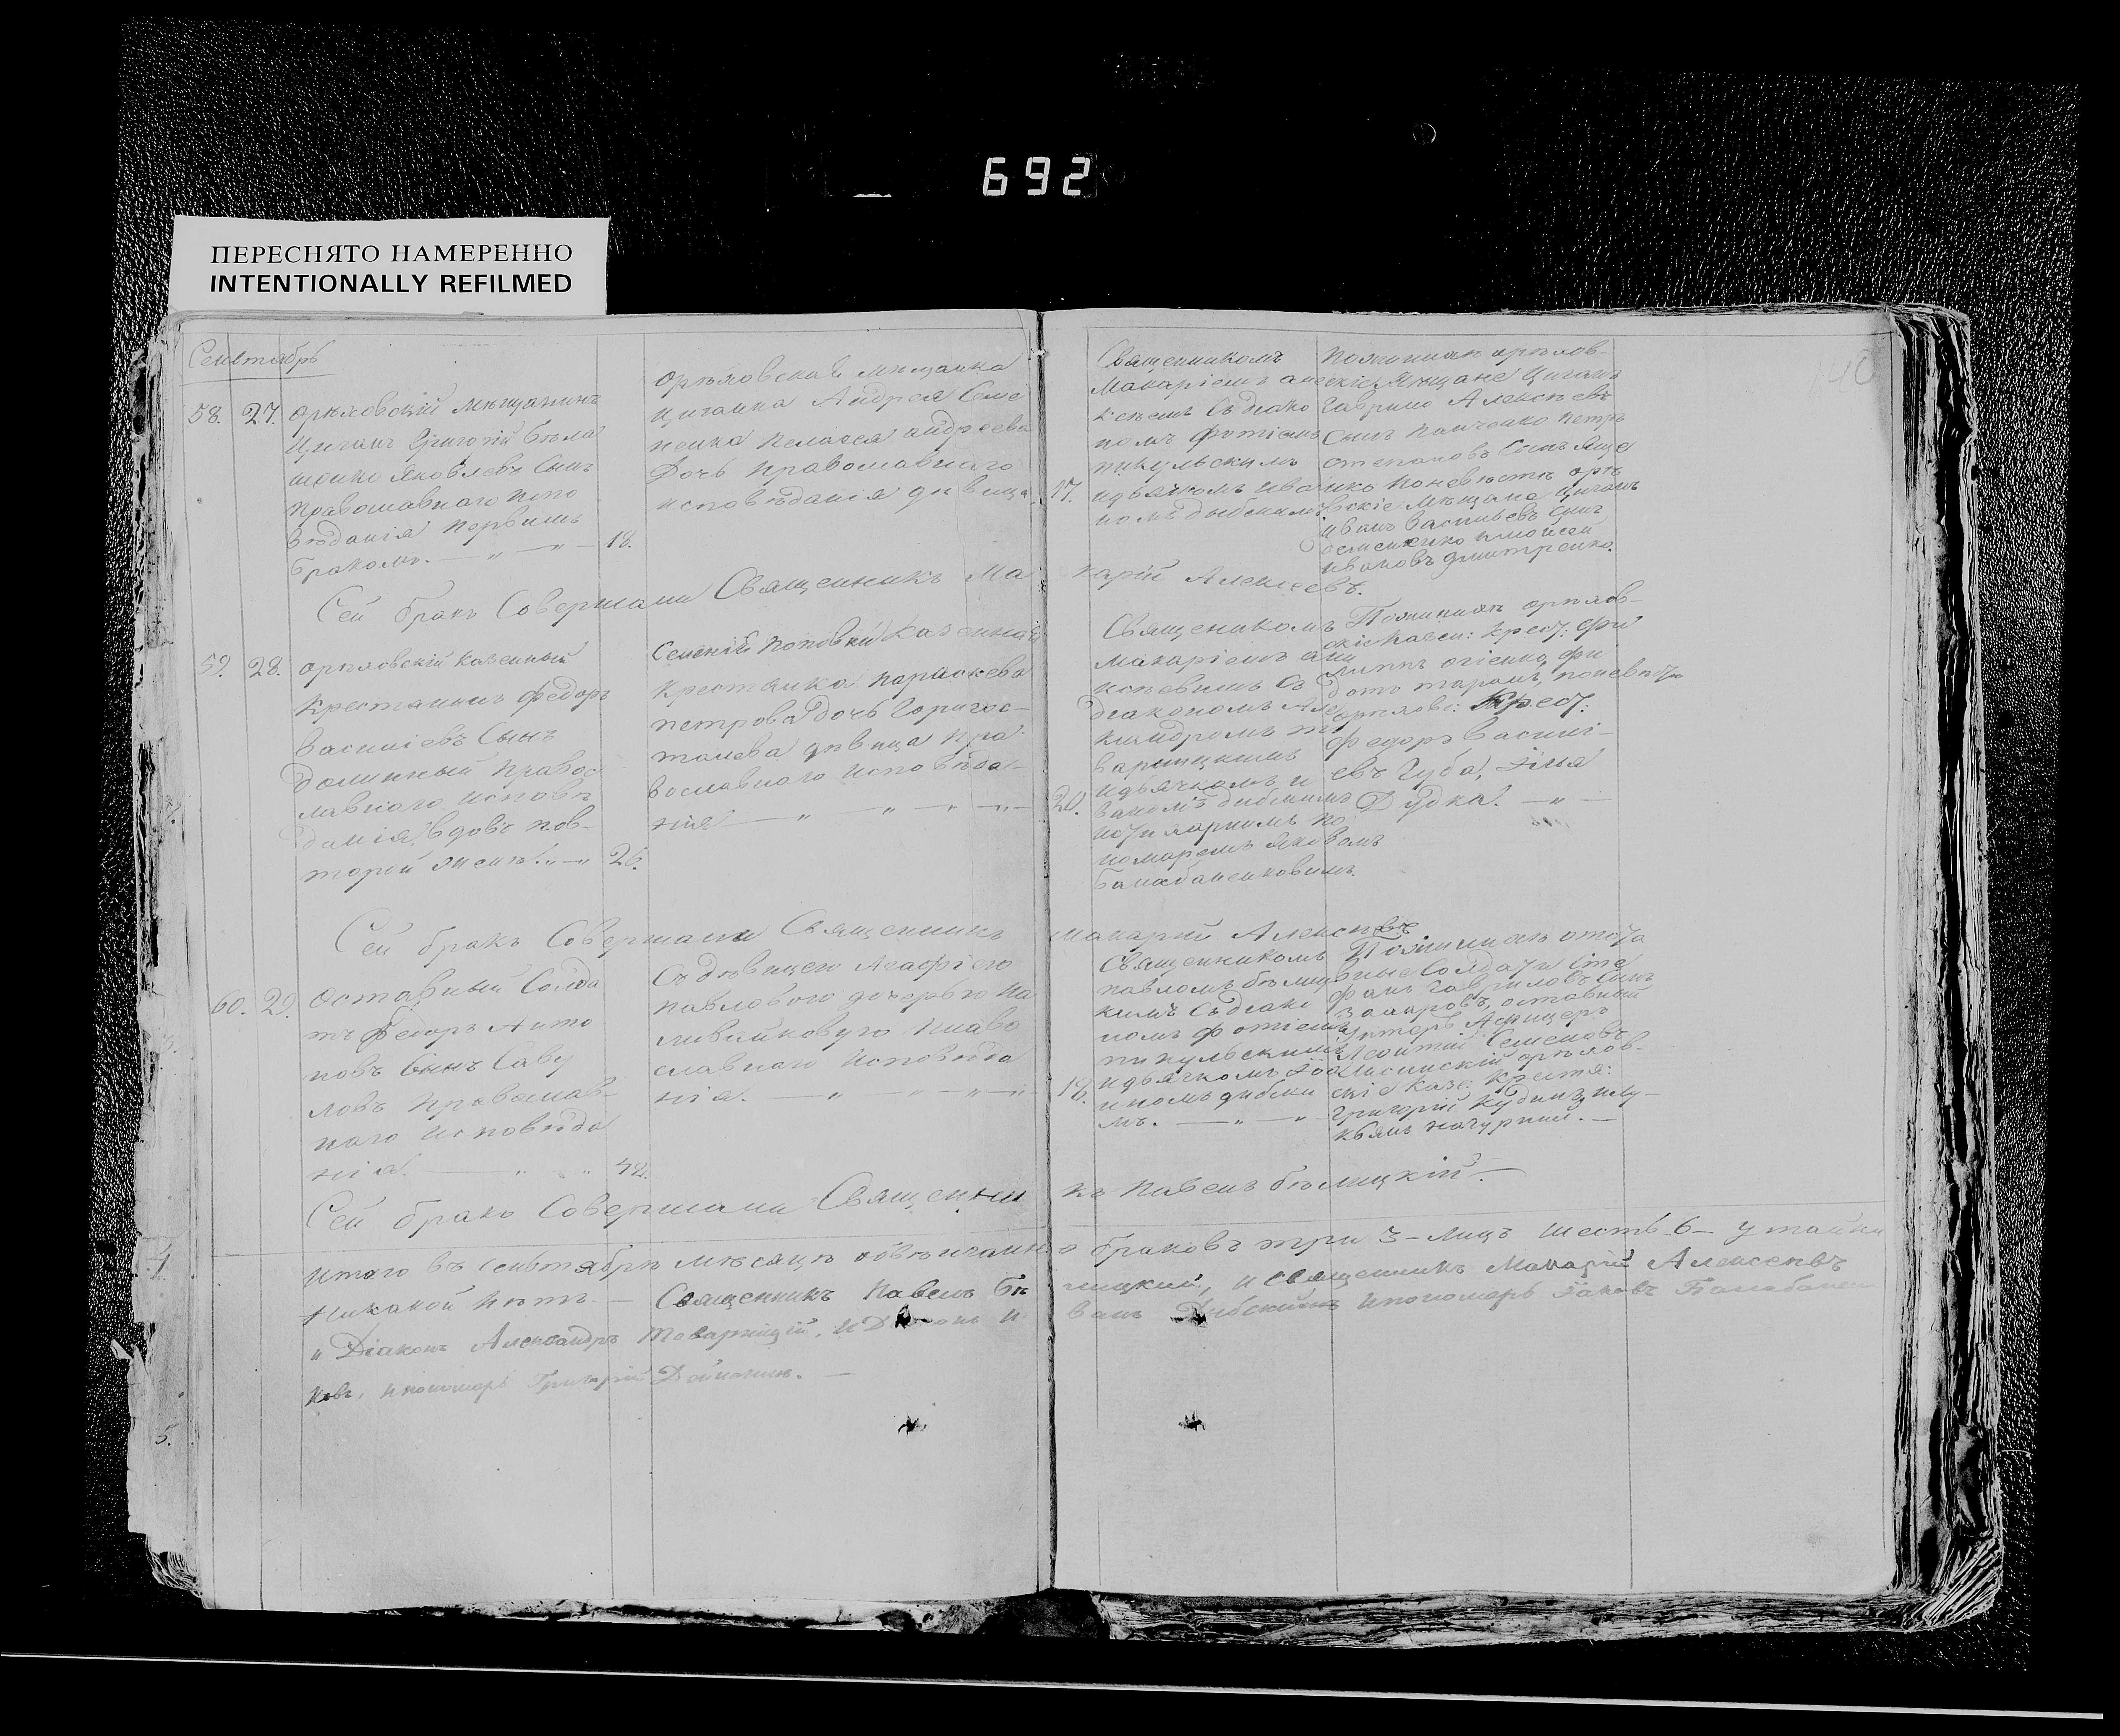 692
ПЕРЕСНЯТО НАМЕРЕННО
INTENTIONALLY REFILMED
Сентябрь
58. 27. орѣховскій мѣщанинъ
Циганъ Григорій Бѣла
шенко Яковлевъ Сынъ
православнаго испо
вѣданія первымъ
бракомъ. — „ — „ — 18.
орѣховская мѣщанка
циганка Андрея Семе
ненка Пелагея андреева
дочь православнаго
исповѣданія дѣвица. 17.
Священникомъ
Макаріемъ але
ксѣемъ Съ діако
номъ Фотіемъ
пикульскимъ
идьячкомъ ива
номъ дибскимъ
Поженихѣ орѣхов-
скіе Мѣщане Циганъ
Гаврило Алексѣевъ
Сынъ Панченко петръ
степановъ Сынъ
поневѣстѣ орѣ
вскіе Мѣщане Циганъ
иванъ васильевъ Сынъ
семененко имойсей
ивановъ дмитренко.
Сей бракъ Совершали Священникъ Ма карій Алексеевъ.
59. 28. орѣховскій казенный
Крестянинъ Федоръ
василіевъ Сынъ
долинный правос
лавнаго исповѣ
данія вдовъ пов-
торій женѣ. „ — „ 26.
Селенія поповки Казенная
крестянка параскева
петрова дочь
дѣвица пра-
вославнаго исповѣда-
нія — „ — „ — „ — 20.
Священикомъ
Макаріемъ али
ксѣевимъ Съ
діакономъ Але
ксандромъ то
варницкимъ
идьячкомъ и
ваномъ дибскимъ
по
номаремъ Яковомъ
Балабаненковимъ.
Поженихѣ орѣхов-
скіе Казен: Крест: Фи
липъ огіенко, фи
дотъ таранъ, поневѣстѣ
орѣхове: Крест:
Федоръ василі-
евъ Губа, Илія
Дудка. — „ —
Сей бракъ Совершали Священникъ Макарій Алексѣевъ
60. 29. Оставный Солда
тъ Федоръ Анто
новъ Сынъ Саву
ловъ православ-
наго исповѣда
нія. — „ „ 42.
Съ дѣвицею Агафіею
павловою дочерью На
ливайковую Право
славнаго исповѣда
нія. — „ — „ — „ — „ 18.
Священникомъ
павломъ бѣлиц
кимъ Съ діако
номъ фотіемъ
пикульскимъ
идьячкомъ Іоа
нномъ дибски
мъ. — „ — „
Поженихѣ отста
вные Солдаты Сте
фанъ Гавриловъ Сынъ
захаровъ, оставный
Унтеръ Афицеръ
Леонтій Семеновъ
орѣхов-
скіе казе: Крестя:
Григорій Кудинъ, илу-
кьянъ
Сей бракъ Совершали Священни къ Павелъ бѣлицкій. —
Итого въ сентябрѣ мѣсяцѣ обвѣнчанно браковъ три 3 — лицъ шесть 6 — утайки
Никакой нѣтъ — Священникъ Павелъ Бѣ лицкий, и Священникъ Макарій Алексеевъ
„ Діаконъ Александръ Товарницій, и Дьячокъ И ванъ Дибский ипономарь Іаковъ Балабанен
ковъ, ипономарь Григорій
4
5.